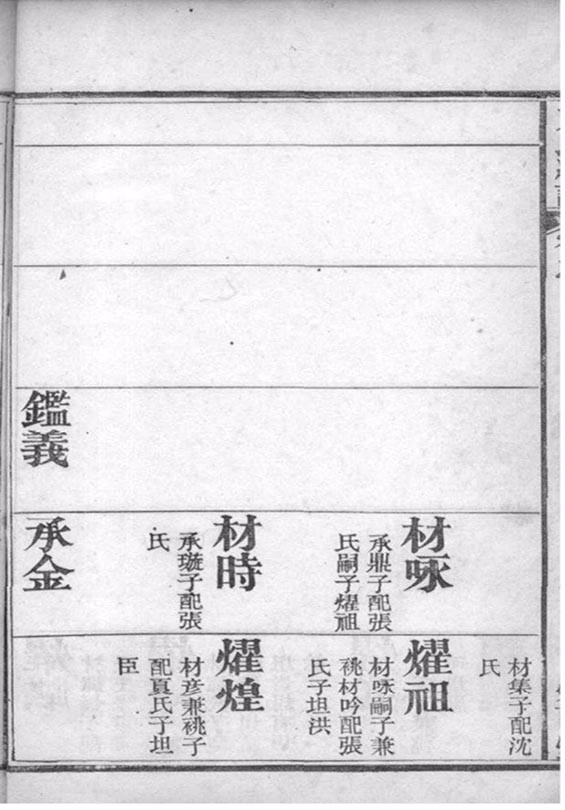 鑑義
材咏
承鼎子配張
氏嗣子燿祖
材時
承璇子配張
氏
承金
材集子配沈
氏
燿祖
材咏嗣子兼
祧材吟配張
氏子坦洪
燿煌
材彥兼祧子
配夏氏子坦
臣